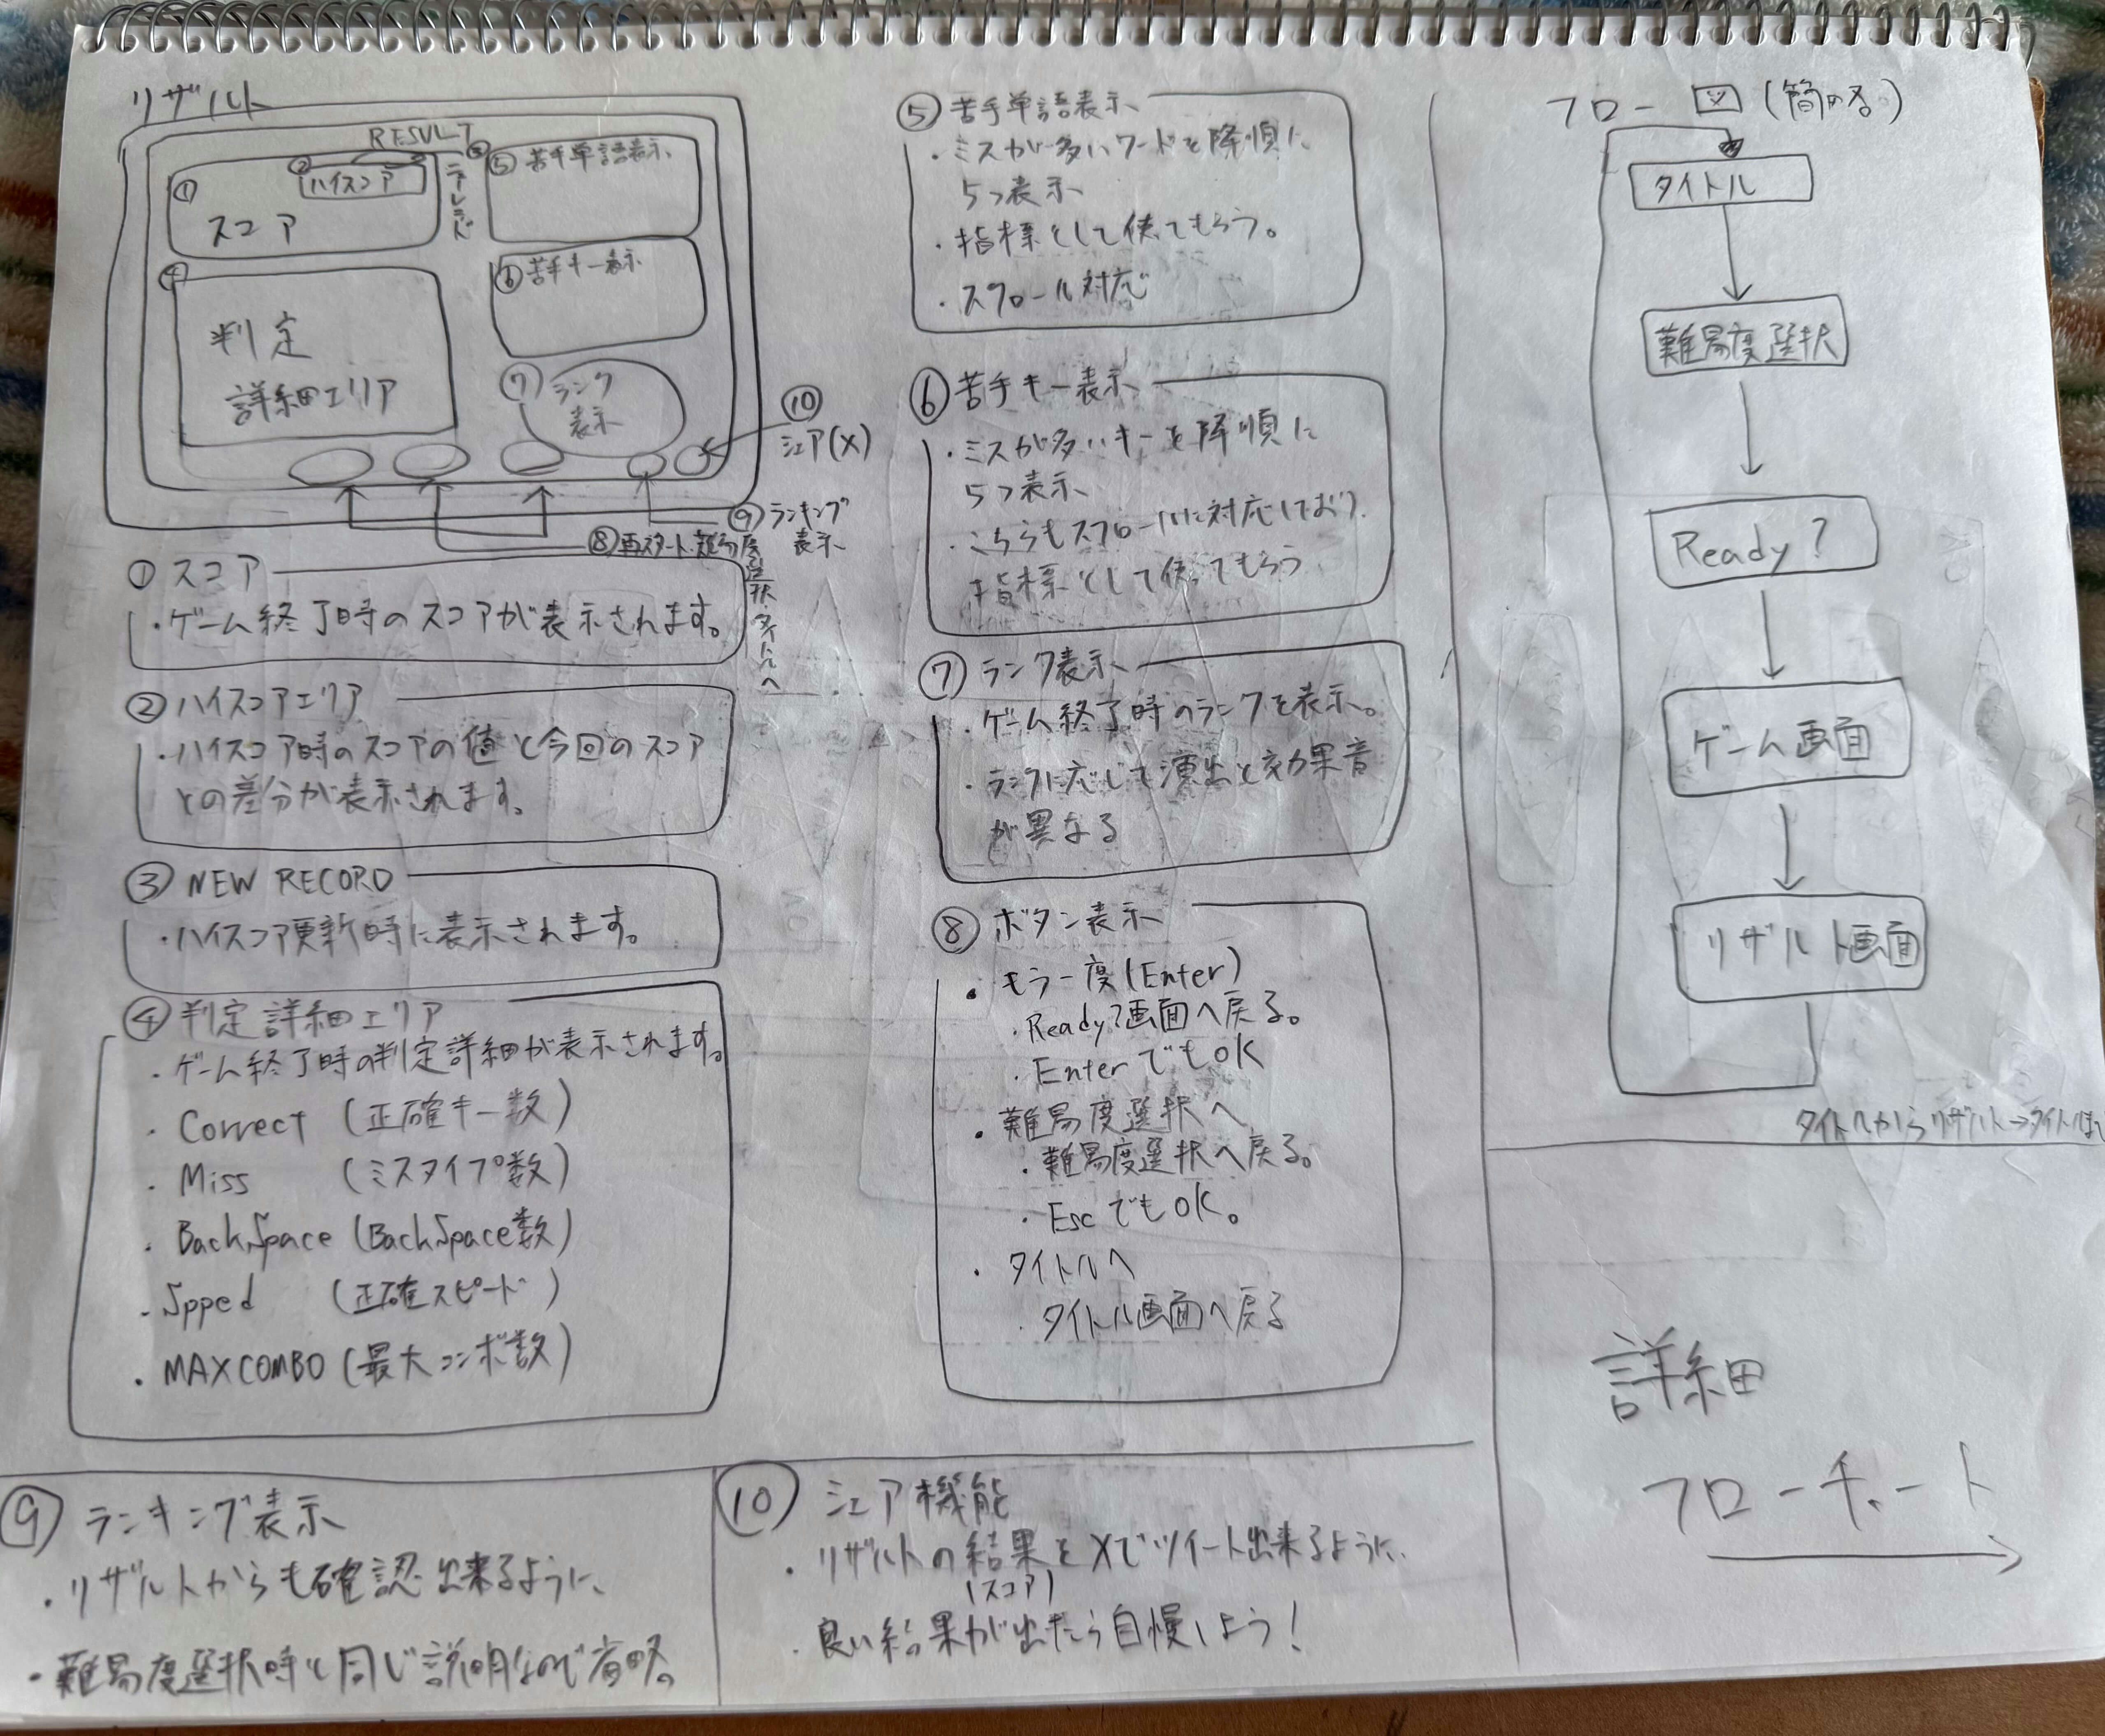 リザルト
RESULT
① スコア
② ハイスコア
③
ニューレコード
④
判定
詳細エリア
⑤ 苦手単語表示
⑥ 苦手キー表示
⑦ ランク
表示
⑩
シェア(X)
⑨ ランキング
表示
⑧ 再スタート・難易度選択・タイトルへ
① スコア
・ゲーム終了時のスコアが表示されます。
② ハイスコアエリア
・ハイスコア時のスコアの値と今回のスコア
との差分が表示されます。
③ NEW RECORD
・ハイスコア更新時に表示されます。
④ 判定詳細エリア
・ゲーム終了時の判定詳細が表示されます。
・Correct (正確キー数)
・Miss (ミスタイプ数)
・BackSpace (BackSpace数)
・Spped (正確スピード)
・MAXCOMBO (最大コンボ数)
⑤ 苦手単語表示
・ミスが多いワードを降順に
5つ表示
・指標として使てもらう。
・スクロール対応
⑥ 苦手キー表示
・ミスが多いキーを降順に
5つ表示
・こちらもスクロールに対応しており、
指標として使ってもらう
⑦ ランク表示
・ゲーム終了時のランクを表示。
・ランクに応じて演出と効果音
が異なる
⑧ ボタン表示
・もう一度(Enter)
・Ready?画面へ戻る。
・EnterでもOK
・難易度選択へ
・難易度選択へ戻る。
・EscでもOK。
・タイトルへ
・タイトル画面へ戻る
⑨ ランキング表示
・リザルトからも確認出来るように、
・難易度選択時と同じ説明なので省略。
⑩ シェア機能
・リザルトの結果をXでツイート出来るように、
(スコア)
・良い結果が出たら自慢しよう!
フロー図(簡略)
タイトル
難易度選択
Ready?
ゲーム画面
リザルト画面
タイトルからリザルト→タイトルまで
詳細
フローチャート